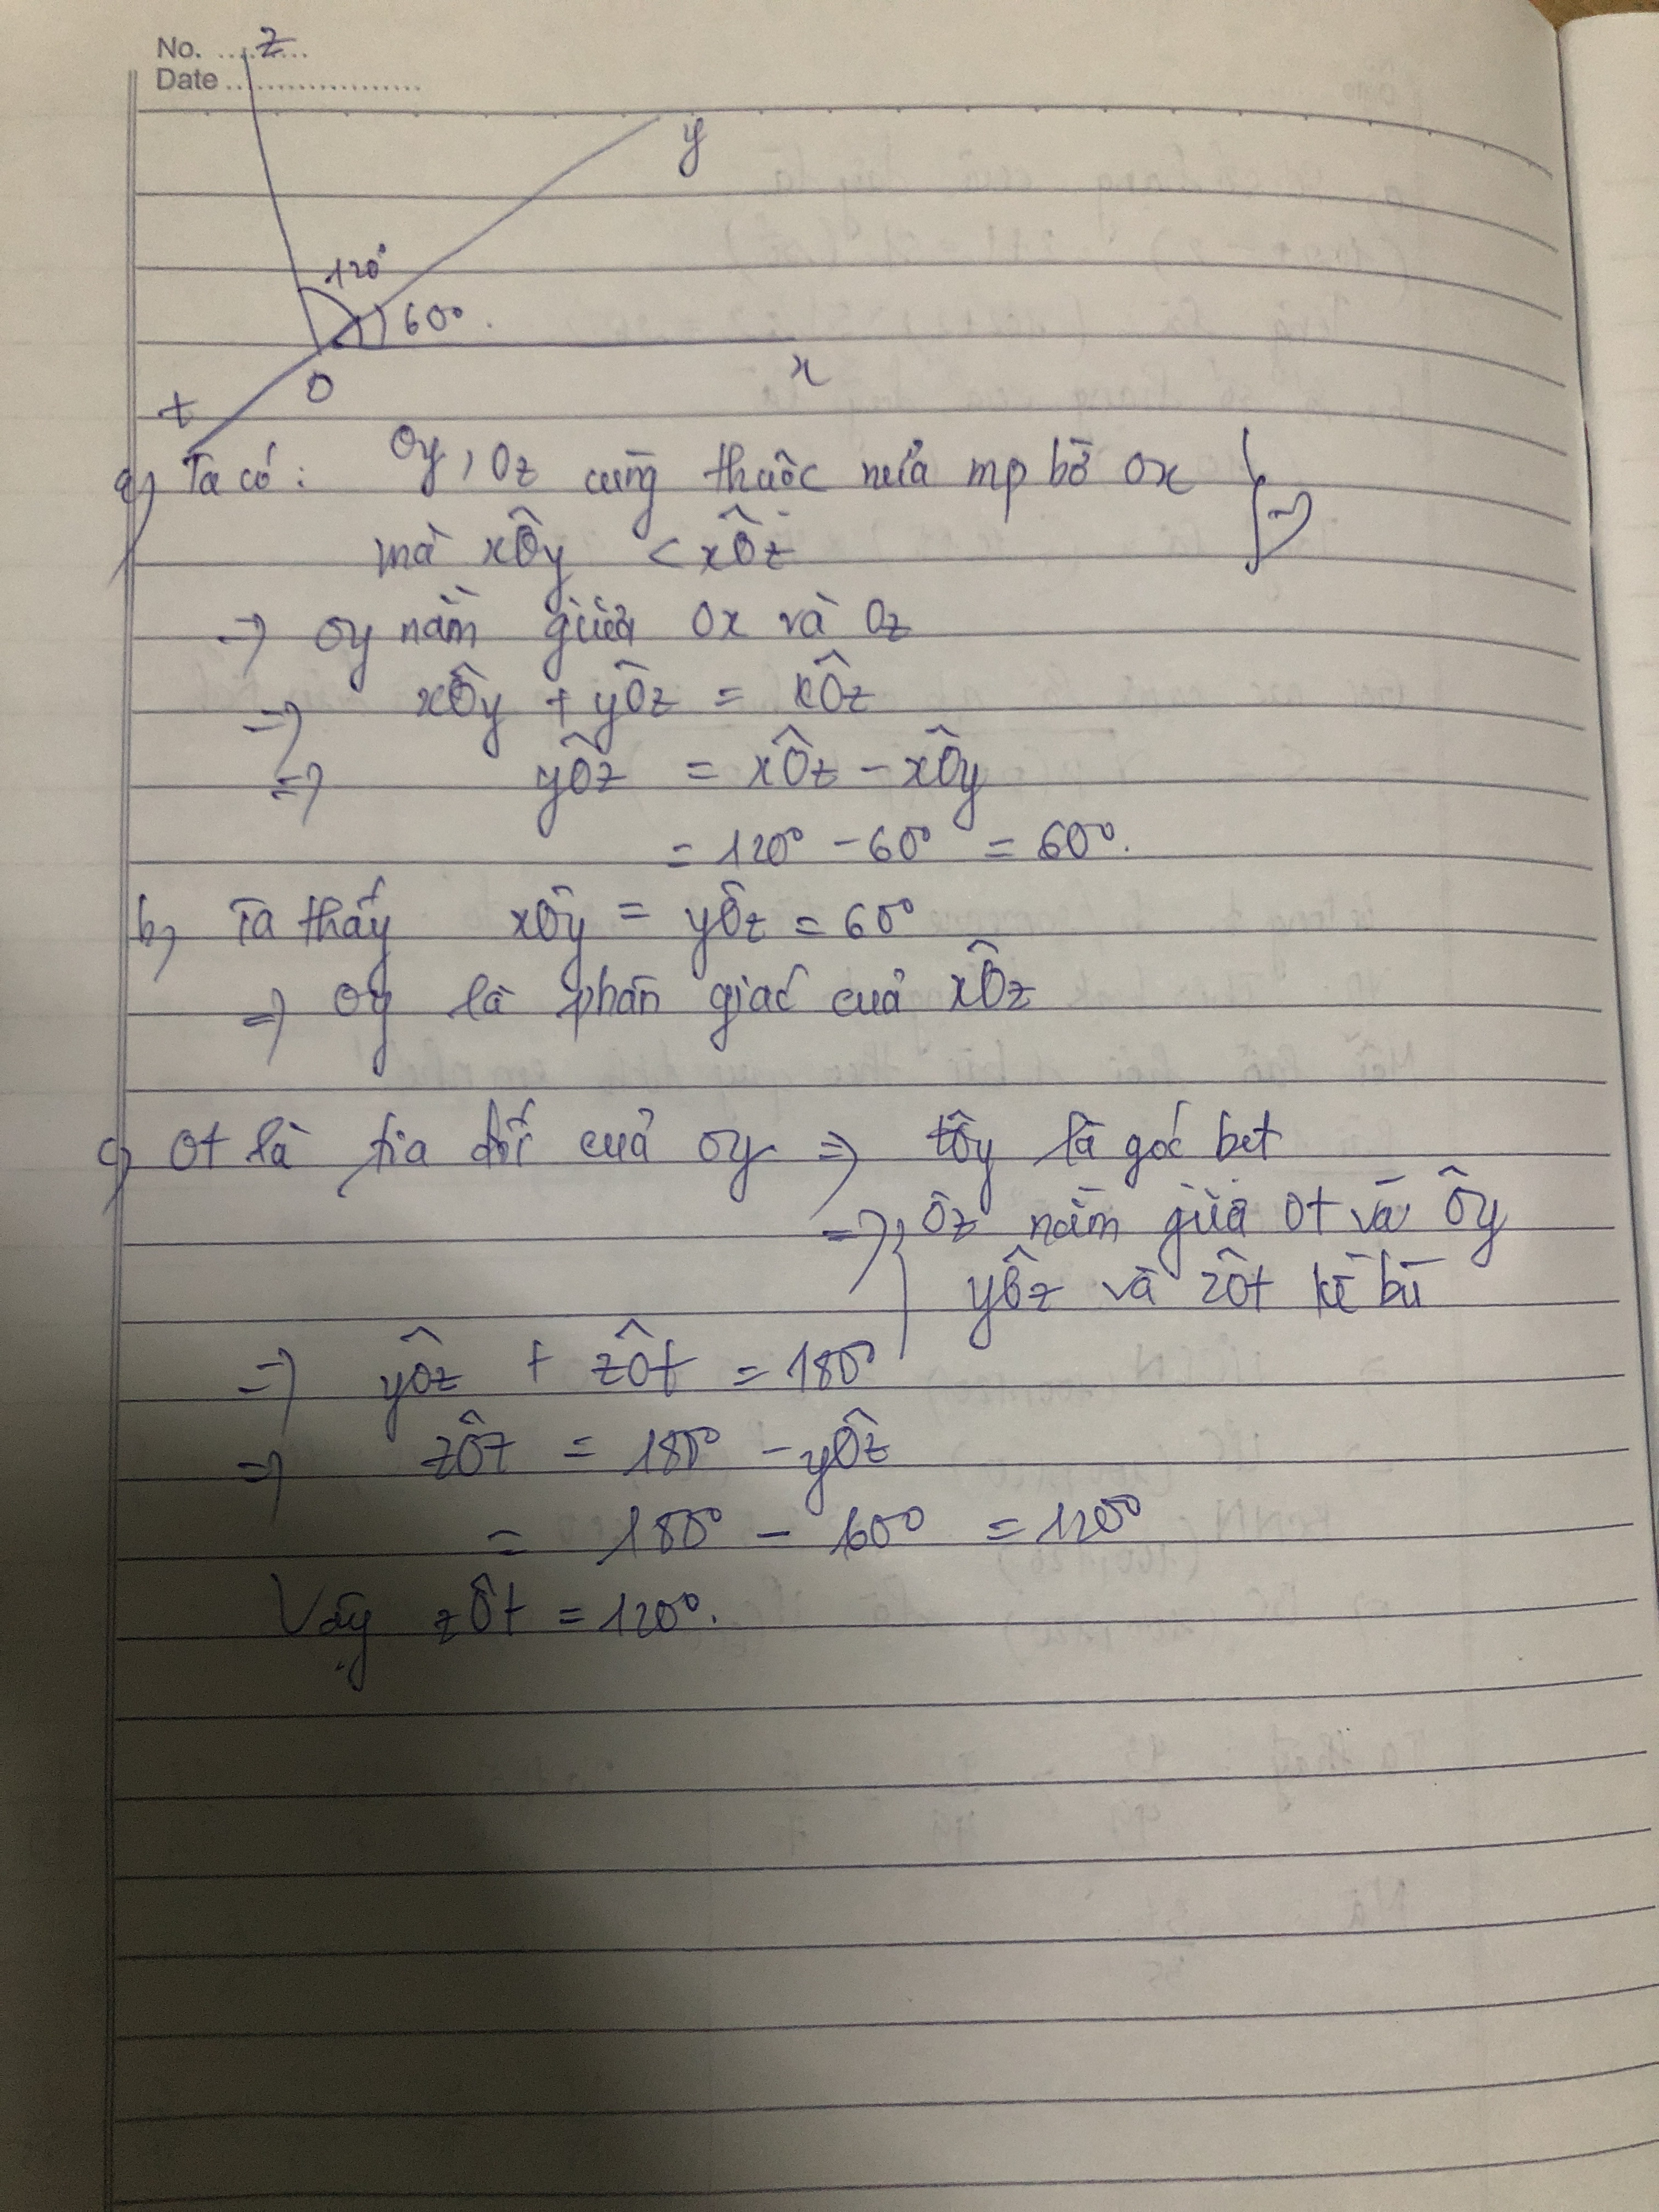 No. ... z ...
Date ....................
y
120°
60°.
x
O
t
a, Ta có: Oy, Oz cùng thuộc nửa mp bờ Ox } =>
mà xÔy < xÔz
=> Oy nằm giữa Ox và Oz
=> xÔy + yÔz = xÔz
=> yÔz = xÔz - xÔy
= 120° - 60° = 60°.
b, Ta thấy xÔy = yÔz = 60°
=> Oy là phân giác của xÔz
c, Ot là tia đối của Oy => tÔy là góc bẹt
=> { Ôz nằm giữa Ot và Ôy
yÔz và zÔt kề bù
=> yÔz + zÔt = 180°
=> zÔt = 180° - yÔz
= 180° - 60° = 120°
Vậy zÔt = 120°.